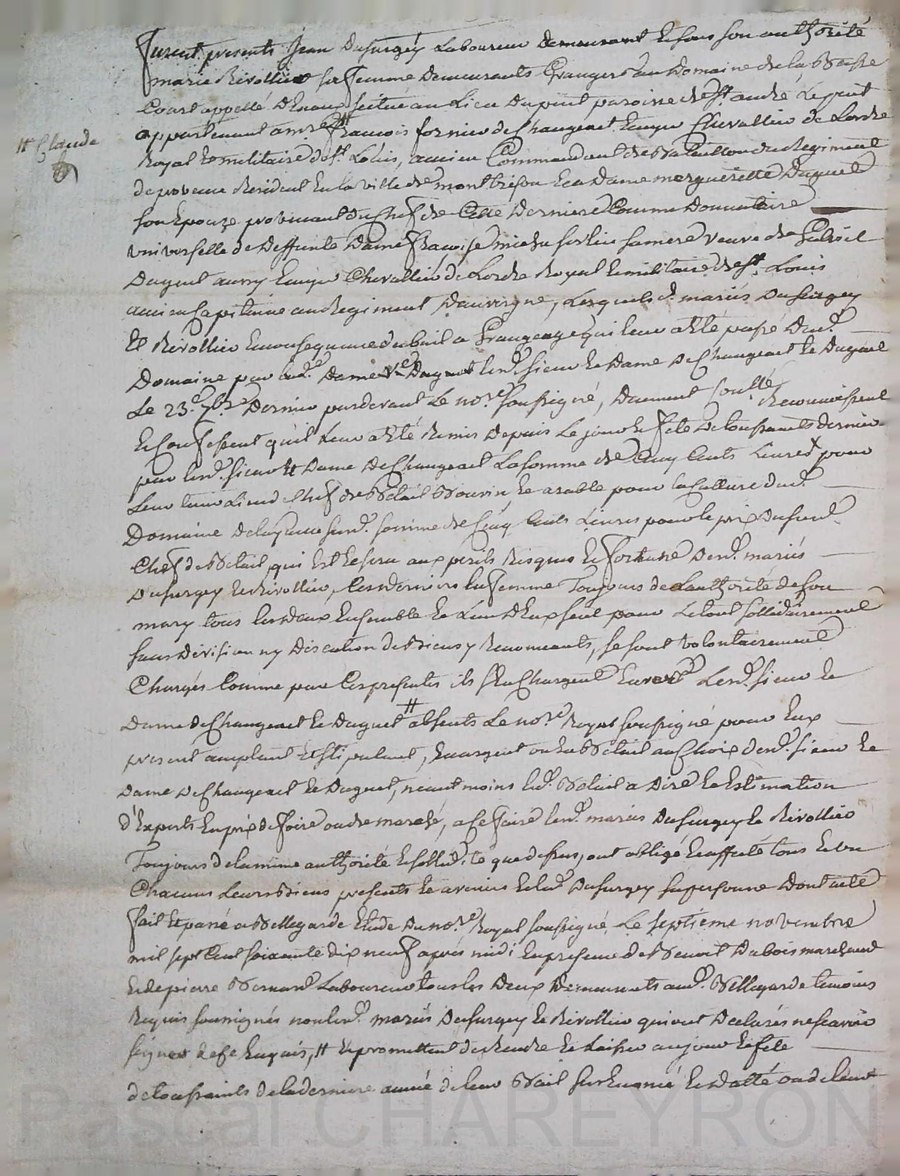 Furent presents Jean Dusurgey Laboureur demeurant Et sous son authorité
marie Rivollier sa femme Demeurants Grangers au Domaine de la Basse
Court appellé situé au Lieu Dupuit paroisse de St. andré Le puit
appartenant a mre # francois fornier de Changeact Ecuyer Chevallier de Lordre
# Claude
Royal Et militaire de St. Louis, ancien Commandant de Bataillon du Regiment
de provence Resident En la ville de montbrison Et a Dame margueritte Duguet
son Epouze provenant du Chef de Cette Derniere Comme Donnataire
universelle de Deffunte Dame francoise sa mere veuve de
Duguet aussy Ecuyer Chevallier de Lordre Royal Et militaire de St. Louis
ancien Capitaine au Regiment Dauvergne, Lesquels d. mariés Dusurgey
Et Rivollier En consequance du bail a Grangeage qui leur a Eté passé Dud.
Domaine par lad. Dame Duguet lesd. sieur Et Dame De Changeact Et Duguet
Le 23e. 7bre Dernier pardevant Le nore. soussigné, Reconnoissent
Et Confessent qu'il Leur a Eté Remis Depuis Le jour Et fete De toussaints dernier
par lesd. sieur Et Dame De Changeact La somme de Cinq Cents Livres pour
Leur tenir Lieu de Chef de Betail Bouvin Et arable pour la Culture dud.
Domaine De laquelle susd. somme de Cinq Cents Livres pour le prix Dususd.
Chef de Betail, qui Est Et sera aux perils Risques Et fortune Desd. mariés
Dusurgey Et Rivollier, Ces derniers La femme Toujours de Lauthorité de son
mary tous Les deux Ensemble Et L'un D'eux seul pour Le tout sollidairement
sans Division ny Discution de Biens y Renonceants, se sont volontairement
Chargés Comme par Ces presentes ils se Chargent Envers Lesd. sieur Et
Dame de Changeact Et Duguet # absents Le nore. Royal soussigné pour Eux
present acceptant Et stipulant, En argent ou En Betail au Choix desd. sieur Et
Dame De Changeact Et Duguet, neant moins led. Betail a Dire Et Estimation
d'Experts En prix de foire ou de marché, a ce faire lesd. mariés Dusurgey Et Rivollier
Toujours de la meme authorité Et sollidte. que dessus, ont obligé Et affecté tous Et un
Chacuns Leurs Biens presents Et avenirs Et led. Dusurgey sa personne Dont acte
fait Et passé a Bellegarde Etude Du nore. Royal soussigné Le septieme novembre
mil sept Cent soixante dix neuf après midi En presence de Benoit Dubois marchand
Et de pierre Laboureur tous les Deux Demeurants aud. Bellegarde temoins
Requis soussignés non lesd. mariés Dusurgey Et Rivollier qui ont Declarés ne scavoir
signer de ce Enquis, # Et promettent de Rendre Et Laisser au jour Et fete
de toussaints de la derniere année de leur Bail
Pascal CHAREYRON